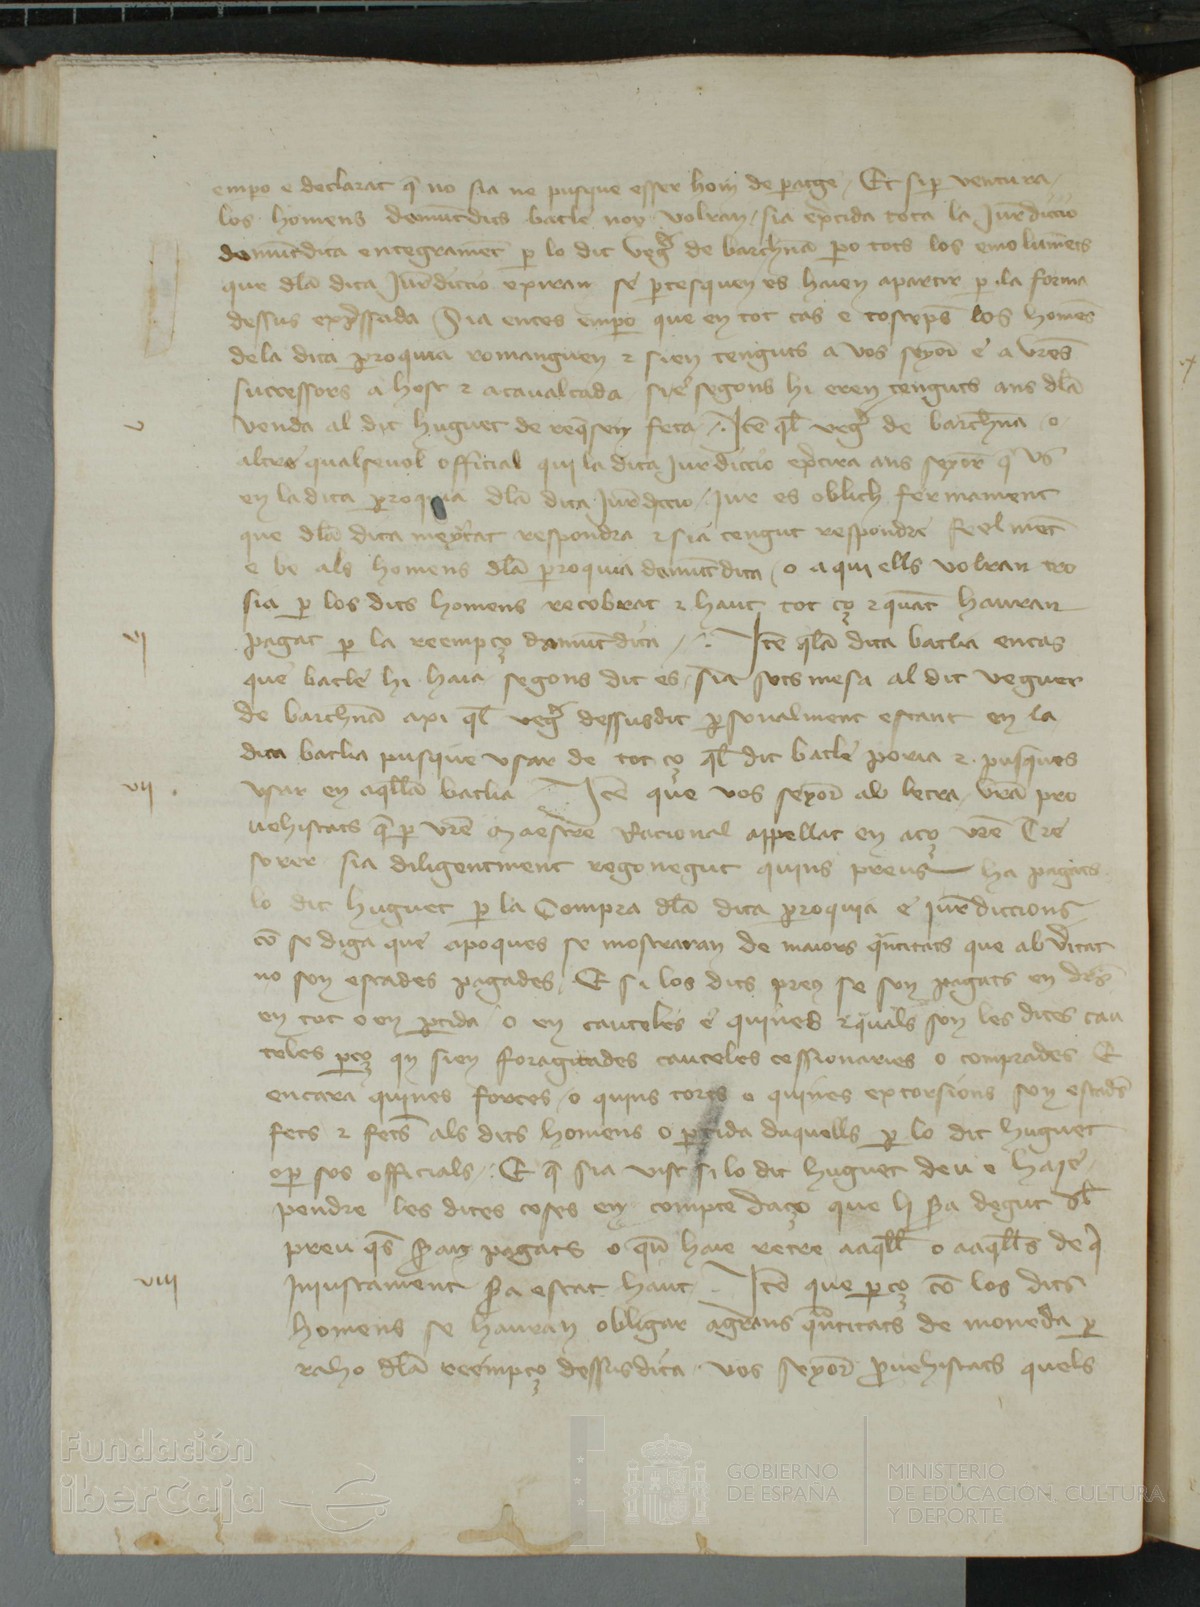 empo e declarat q̄ no sia ne pusque esser hom de paratge / Et si per ventura /
los homens damūtdits batle noy volran / sia exercida tota la Jur̄diccio
damūtdita entegramēt p lo dit veg̃r de barchn̄a p̱o tots los emolumēts
que dl̄a dita Jur̄diccio exiran se p̱tesquen es haien apartir p la forma
dessus exp̃ssada / Sia entes empo que en tot cas e tostēps los homēs
dela dita p̱roquia romanguen ⁊ sien tenguts a vos seyor e a vr̄es
successors a host ⁊ acaualcada segons hi eren tenguts ans dl̄a
v
venda al dit huguet de feta / Itē ql̄ veg̃r de barchn̄a o
altre qualseuol official qui la dita Jurdiccio ans
en la dita p̱roquia dl̄a dita Jur̄diccio / Jur es oblich fermament
que dl̄a dita meytat respondra ⁊ sia tengut respondre feelmēt
e be als homens dl̄a p̱roquia damūtdita / o aqui ells volran tro
sia p los dits homens recobrat ⁊ haut tot ço ⁊ quāt hauran
vj
pagat p la reempço damūtdita / Itē ql̄a dita batlia encas
que batle hi haia segons dit es / sia sotsmesa al dit veguer
de barchn̄a axi ql̄ veg̃r dessusdit p̱sonalment estant en la
dita batlia pusque vsar de tot ço ql̄ dit batle poria ⁊ pusques
vij
vsar en aqll̄a batlia Itē que vos seyor ab letra vr̄a pro
uehiscats q̄ p vr̄e Maestre Racional appellat en aço vr̄e Tre
sorer sia diligentment regonegut quins preus ha pagats
lo dit huguet p la Compra dl̄a dita p̱roquia e jur̄diccions
cō se diga que apoques se mostraran de maiors q̃ntitats que ab v̄itat
no son estades pagades / E si los dits preus se son pagats en drs̄
en tot o en p̱tida / o en cauteles e quines ⁊ quals son les dites cau
teles p̱ço qn sien foragitades cauteles cessionaries o comprades E
encara quines forces / o quins torts o quines extorsions son estades
fets ⁊ fets als dits homens o p̱tida daquells p lo dit huguet
o p sos officials / E q̄ sia vist si lo dit huguet deu e haie
pendre les dites coses en compte daço que li s̄a degut dl̄
preu qs̄ s̄an pagats o qn̄ haie retre aaqll̄ o aaqll̄s de q̄
viij
Iniustament s̄a estat haut / Itē que p̱ço cō los dits
homens se hauran obligar agrans q̃ntitats de moneda p
raho dl̄a reempço dessusdita / vos seyor p̃uehiscats quels
Fundación
iberCaja
GOBIERNO
DE ESPAÑA
MINISTERIO
DE EDUCACIÓN, CULTURA
Y DEPORTE